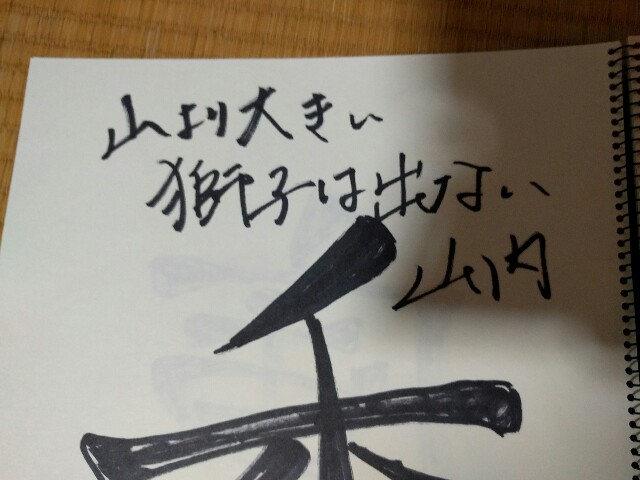 山より大きい
獅子は出ない
山内